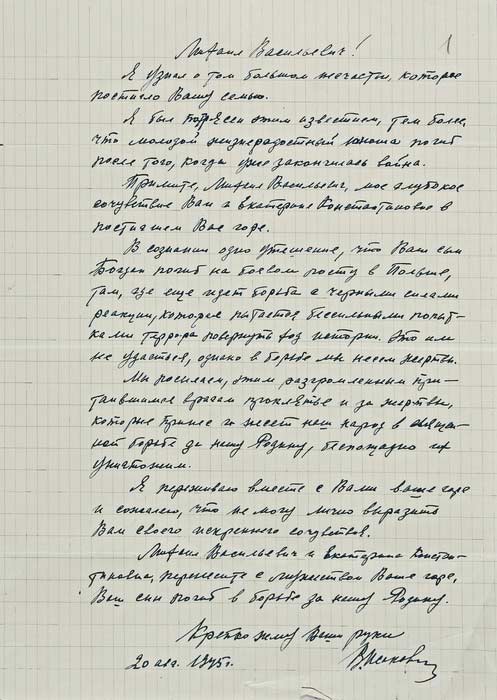 Михаил Васильевич!
1
Я узнал о том большом несчастьи, которое
постигло Вашу семью.
Я был потрясен этим известием, тем более,
что молодой жизнерадостный юноша погиб
после того, когда уже закончилась война.
Примите, Михаил Васильевич, мое глубокое
сочувствие Вам и Екатерине Константиновне в
постигшем Вас горе.
В сознании одно утешение, что Ваш сын
Богдан погиб на боевом посту в Польше,
там, где еще идет борьба с черными силами
реакции, которые пытается бессильными попыт-
ками террора повернуть ход истории. Это им
не удастся, однако в борьбе мы несем жертвы.
Мы посылаем, этим разгромленным при-
таившимся врагам проклятье и за жертвы,
которые принес и несет наш народ в священ-
ной борьбе за нашу Родину, беспощадно их
уничтожим.
Я переживаю вместе с Вами ваше горе
и сожалею, что не могу лично выразить
Вам своего искреннего сочувствия.
Михаил Васильевич и Екатерина Констан-
тиновна, перенесите с мужеством Ваше горе,
Ваш сын погиб в борьбе за нашу Родину.
Крепко жму Ваши руки
20 авг. 1945г.